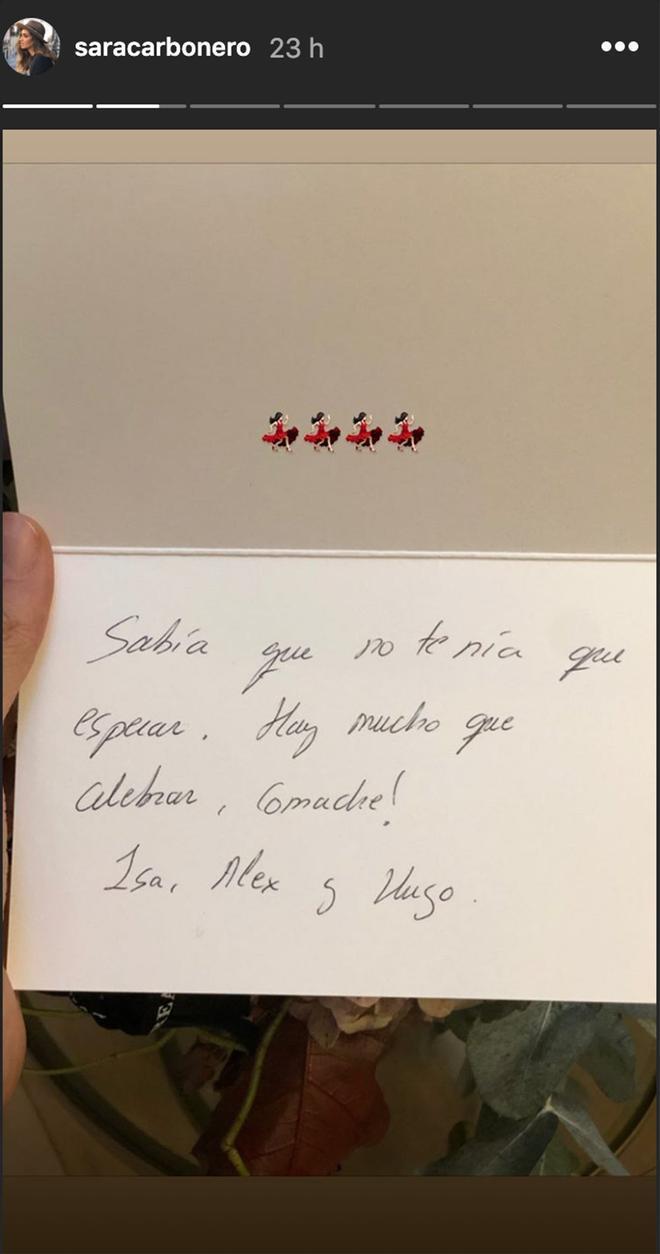 saracarbonero 23 h
Sabía que no tenía que
esperar. Hay mucho que
celebrar, Comadre!
Isa, Alex y Hugo.